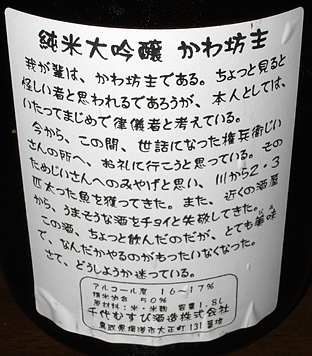 純米大吟醸 かわ坊主
我が輩は、かわ坊主である。ちょっと見ると
怪しい者と思われるであろうが、本人としては、
いたってまじめで律儀者と考えている。
今から、この間、世話になった権兵衛じい
さんの所へ、お礼に行こうと思っている。その
ためじいさんへのみやげと思い、川から2・3
匹太った魚を獲ってきた。また、近くの酒屋
から、うまそうな酒をチョイと失敬してきた。
この酒、ちょっと飲んだのだが、とても美味
で、なんだかやるのがもったいなくなった。
さて、どうしようか迷っている。
アルコール度 16〜17%
精米歩合 50%
原材料:米・米麹 容量1.8L
千代むすび酒造株式会社
鳥取県境港市大正町131番地